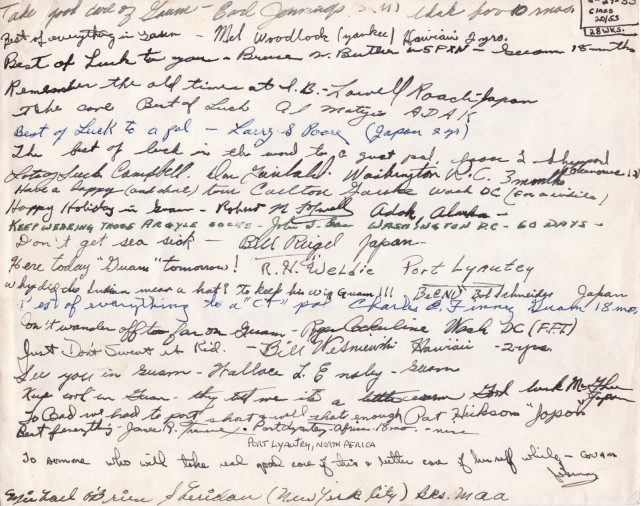 Take good care of Guam - Earl Jennings
CLASS
20/53
28 WKS.
Best of everything in Guam - Mel Woodlock (yankee) Hawaii 2 yrs.
Best of Luck to you - Bruce W. Butler - Guam 18 months
Remember the old times at I.B. - Lowell Roach - Japan
Best of Luck Al ADAK
Best of Luck to a pal - Larry S Poore (Japan 2 yrs)
The best of luck in the world to a great pal. from
Lots of Luck Campbell. Don Washington D.C. 3 months
Have a happy time Carlton Wash DC
Happy Holiday in Guam - Robert N. Adak, Alaska -
KEEP WEARING THOSE ARGYLE SOCKS - John WASHINGTON DC - 60 DAYS -
Don't get sea sick - Bill Rugel Japan -
Here today "Guam" tomorrow! R. H. Port Lyautey
Why did the Indian wear a hat? To keep his wig Guam!!! Bob Schneider Japan
Best of everything to a "CT" pal Charles E. Finney Guam 18 mo.
Don't wander off too far on Guam - Wash DC
Just Don't Sweat it Kid. - Bill Wesniewski Hawaii - 2 yrs.
See you in Guam - Wallace L. - Guam
Keep in Guam - they tell me it's a Good luck
Too Bad we had to part short & well that enough Pat Hickson "Japan"
Best of everything - Port Lyautey - Africa - 18 mo. -
PORT LYAUTEY, NORTH AFRICA
To someone who will take real good care of this & better care of himself while - Guam
Michael O'Brien Sheridan (New York City) Sks. maa